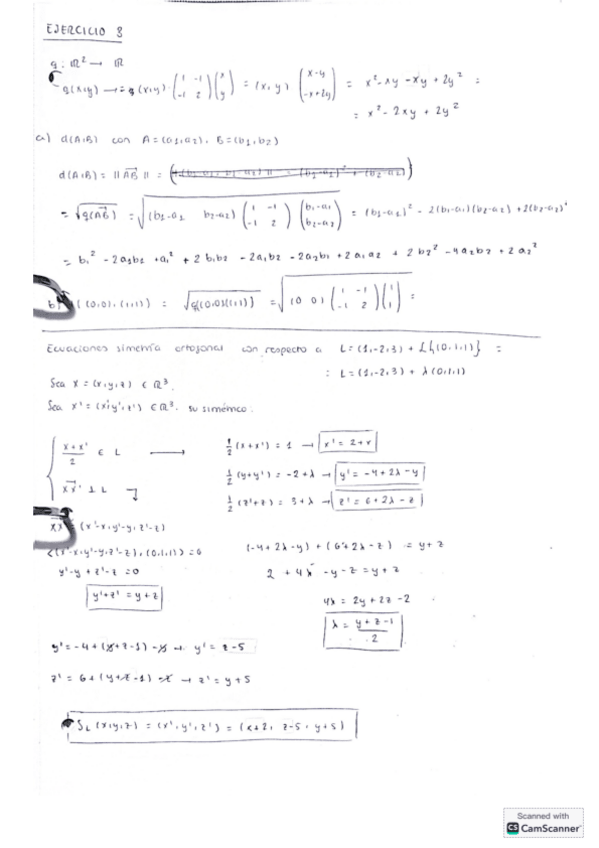 EJERCICIO 8
q: ℝ² → ℝ
q(x,y) → q(x,y) · (1 -1 / -1 2) (x / y) = (x, y) (x-y / -x+2y) = x² - xy - xy + 2y² =
= x² - 2xy + 2y²
a) d(A,B) con A = (a1,a2), B = (b1,b2)
d(A,B) = ||AB|| =
= √q(AB) = √(b1-a1 b2-a2) (1 -1 / -1 2) (b1-a1 / b2-a2) = (b1-a1)² - 2(b1-a1)(b2-a2) + 2(b2-a2)²
= b1² - 2a1b1 + a1² + 2b1b2 - 2a1b2 - 2a2b1 + 2a1a2 + 2b2² - 4a2b2 + 2a2²
b) ((0,0), (1,1)) = √q(0,0)(1,1) = √(0 0) (1 -1 / -1 2) (1 / 1) =
Ecuaciones simetría ortogonal con respecto a L = (1,-2,3) + L{(0,1,1)} =
= L = (1,-2,3) + λ(0,1,1)
Sea x = (x,y,z) ∈ ℝ³.
Sea x' = (x',y',z') ∈ ℝ³. su simétrico:
(x+x')/2 ∈ L →
xx' ⊥ L
1/2 (x+x') = 1 → x' = 2+x
1/2 (y+y') = -2+λ → y' = -4+2λ-y
1/2 (z'+z) = 3+λ → z' = 6+2λ-z
xx' = (x'-x, y'-y, z'-z)
<(x'-x, y'-y, z'-z), (0,1,1)> = 0
y'-y + z'-z = 0
y'+z' = y+z
(-4+2λ-y) + (6+2λ-z) = y+z
2 + 4λ - y - z = y+z
4λ = 2y + 2z - 2
λ = (y+z-1)/2
y' = -4 + (y+z-1) - y → y' = z-5
z' = 6 + (y+z-1) - z → z' = y+5
S_L (x,y,z) = (x', y', z') = (x+2, z-5, y+5)
Scanned with
CS CamScanner